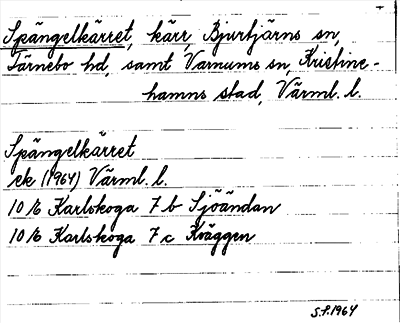 Spängelkärret, kärr, Bjurtjärns sn,
Färnebo hd, samt Varnums sn, Kristine-
hamns stad, Värml. l.
Spängelkärret
ek (1964) Värml. l.
10 E Karlskoga 7 b Sjöändan
10 E Karlskoga 7 c Kväggen
S.F. 1964